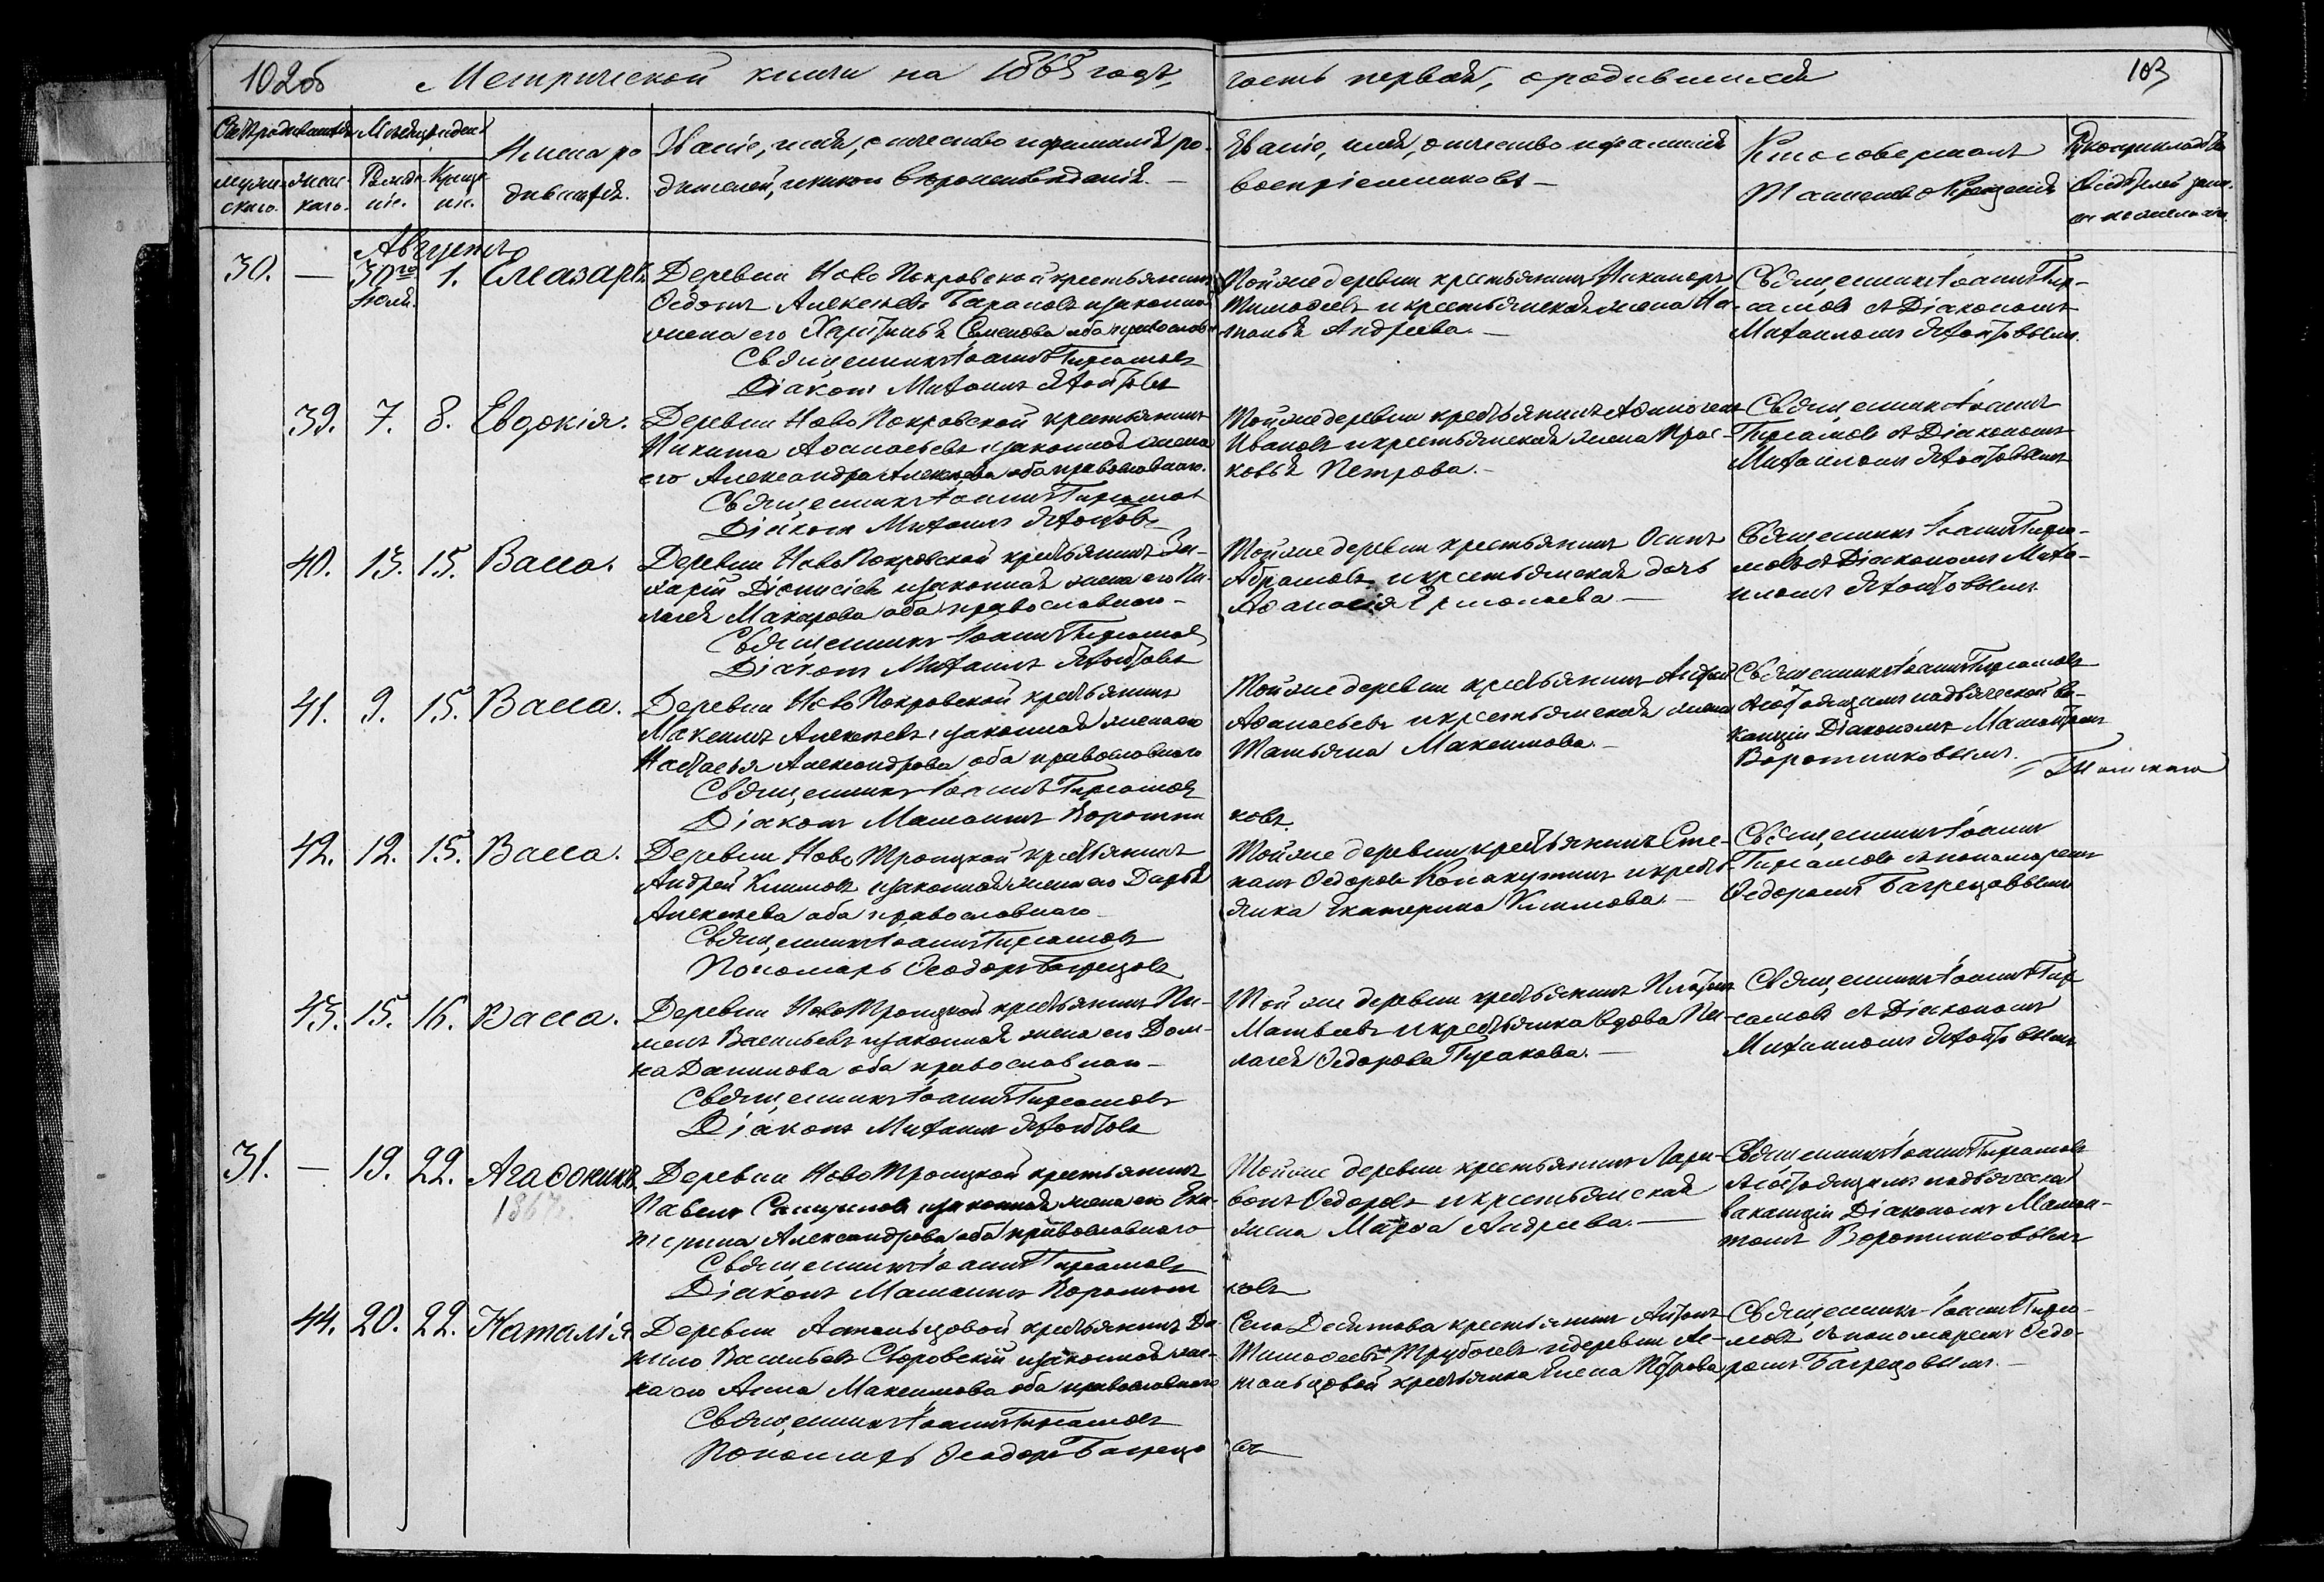 102об Метрической книги на 1865 годъ,
часть первая, о родившихся 103
Счетъ родившихся
Мѣсяцъ и день
Имена ро-
дившихся.
Званіе, имя, отчество и фамилія ро-
дителей, и какого вѣроисповѣданія.
Званіе, имя, отчество и фамилія
воспріемниковъ
Кто совершалъ
Таинство Крещенія
Рукоприкладство
свидѣтелей запи-
си по желанію
муже-
скаго.
жен-
скаго.
Рожде-
нія.
Креще-
нія.
Августъ
30. — 30го 1. Елеазаръ
Іюля.
Деревни Ново Покровской крестьянинъ
Ѳедотъ Алексѣевъ Барановъ и законная
жена его Харитинья Семенова оба православн.
Священникъ Іоаннъ
Діаконъ Михаилъ
Той же деревни крестьянинъ Никаноръ
Тимофеевъ и крестьянская жена На-
талья Андреева.
Священникъ Іоаннъ
съ Діакономъ
Михаиломъ
39. 7. 8. Евдокія.
Деревни Ново Покровской крестьянинъ
Никита Аѳанасьевъ и законная жена
его Александра Алексѣева оба православнаго.
Священникъ Іоаннъ
Діаконъ Михаилъ
Той же деревни крестьянинъ
Ивановъ и крестьянская жена Прас-
ковья Петрова.
Священникъ Іоаннъ
съ Діакономъ
Михаиломъ
40. 13. 15. Васса.
Деревни Ново Покровской крестьянинъ За-
харій Діонисіевъ и законная жена его Пе-
лагея Макарова оба православнаго
Священникъ Іоаннъ
Діаконъ Михаилъ
Той же деревни крестьянинъ Осипъ
Абрамовъ и крестьянская дочь
Аѳанасія Ермолаева
Священникъ Іоаннъ
съ Діакономъ Миха-
иломъ
41. 9. 15. Васса.
Деревни Ново Покровской крестьянинъ
Максимъ Алексѣевъ и законная жена его
Настасья Александрова оба православнаго
Священникъ Іоаннъ
Діаконъ Мамонтъ Воротни
ковъ
Той же деревни крестьянинъ Андрей
Аѳанасьевъ и крестьянская жена
Татьяна Максимова.
Священникъ Іоаннъ
состоящимъ на дьяческой ва-
канціи Діакономъ Мамонтомъ
Воротниковымъ.
42. 12. 15. Васса.
Деревни Ново Троицкой крестьянинъ
Андрей Климовъ и законная жена его Дарья
Алексѣева оба православнаго
Священникъ Іоаннъ
Пономарь Ѳеодоръ Багрецовъ
Той же деревни крестьянинъ Сте-
панъ Ѳедоровъ и кресть-
янка Екатерина Климова.
Священникъ Іоаннъ
съ пономаремъ
Ѳедоромъ Багрецовымъ
43. 15. 16. Васса.
Деревни Ново Троицкой крестьянинъ Пи-
менъ Васильевъ и законная жена его Дом-
на Данилова оба православнаго
Священникъ Іоаннъ
Діаконъ Михаилъ
Той же деревни крестьянинъ Платонъ
Матвеевъ и крестьянка вдова Пе-
лагея Ѳедорова
Священникъ Іоаннъ
съ Діакономъ
Михаиломъ
31. — 19. 22. Агаѳоникъ.
Деревни Ново Троицкой крестьянинъ
Павелъ и законная жена его Ека-
терина Александрова оба православнаго
Священникъ Іоаннъ
Діаконъ Мамонтъ Воротни
ковъ
Той же деревни крестьянинъ Лари-
вонъ Ѳедоровъ и крестьянская
жена Марѳа Андреева.
Священникъ Іоаннъ
состоящимъ на дьяческой
ваканціи Діакономъ Мамон-
томъ Воротниковымъ
44. 20. 22. Наталія
Деревни крестьянинъ Да-
нило Васильевъ и законная же-
на его Анна Максимова оба православнаго
Священникъ Іоаннъ
Пономарь Ѳеодоръ Багрецо
въ
Села крестьянинъ Антонъ
Тимофеевъ и деревни
крестьянка Елена Петрова
Священникъ Іоаннъ
съ пономаремъ Ѳедо-
ромъ Багрецовымъ.